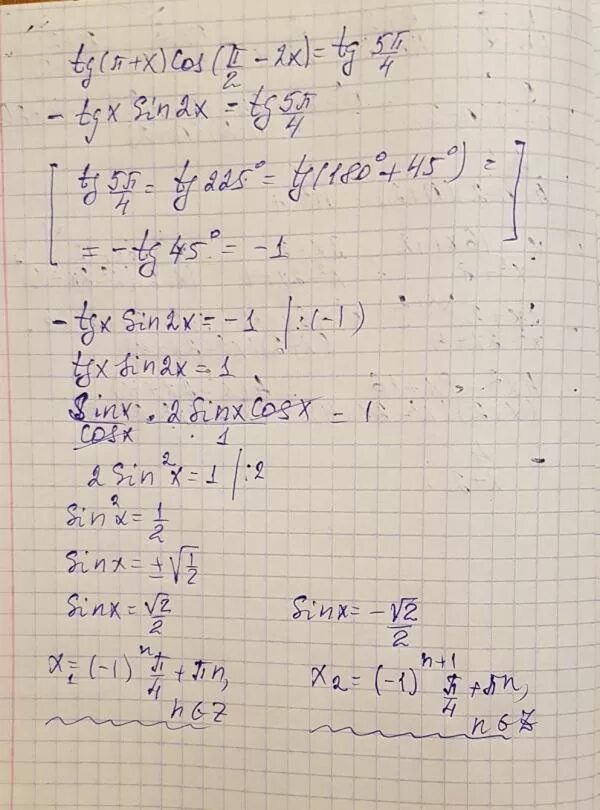 tg(π+x)cos(π/2 − 2x) = tg 5π/4
− tgx sin2x = tg 5π/4
[tg 5π/4 = tg 225° = tg(180° + 45°) =
= − tg 45° = −1]
− tgx sin2x = −1 |:(−1)
tgx sin2x = 1
sinx/cosx · 2 sinx cosx/1 = 1
2 sin²x = 1 |:2
sin²x = 1/2
sinx = ±√(1/2)
sinx = √2/2 sinx = −√2/2
x₁ = (−1)ⁿ π/4 + πn, x₂ = (−1)ⁿ⁺¹ π/4 + πn,
n ∈ Z n ∈ Z